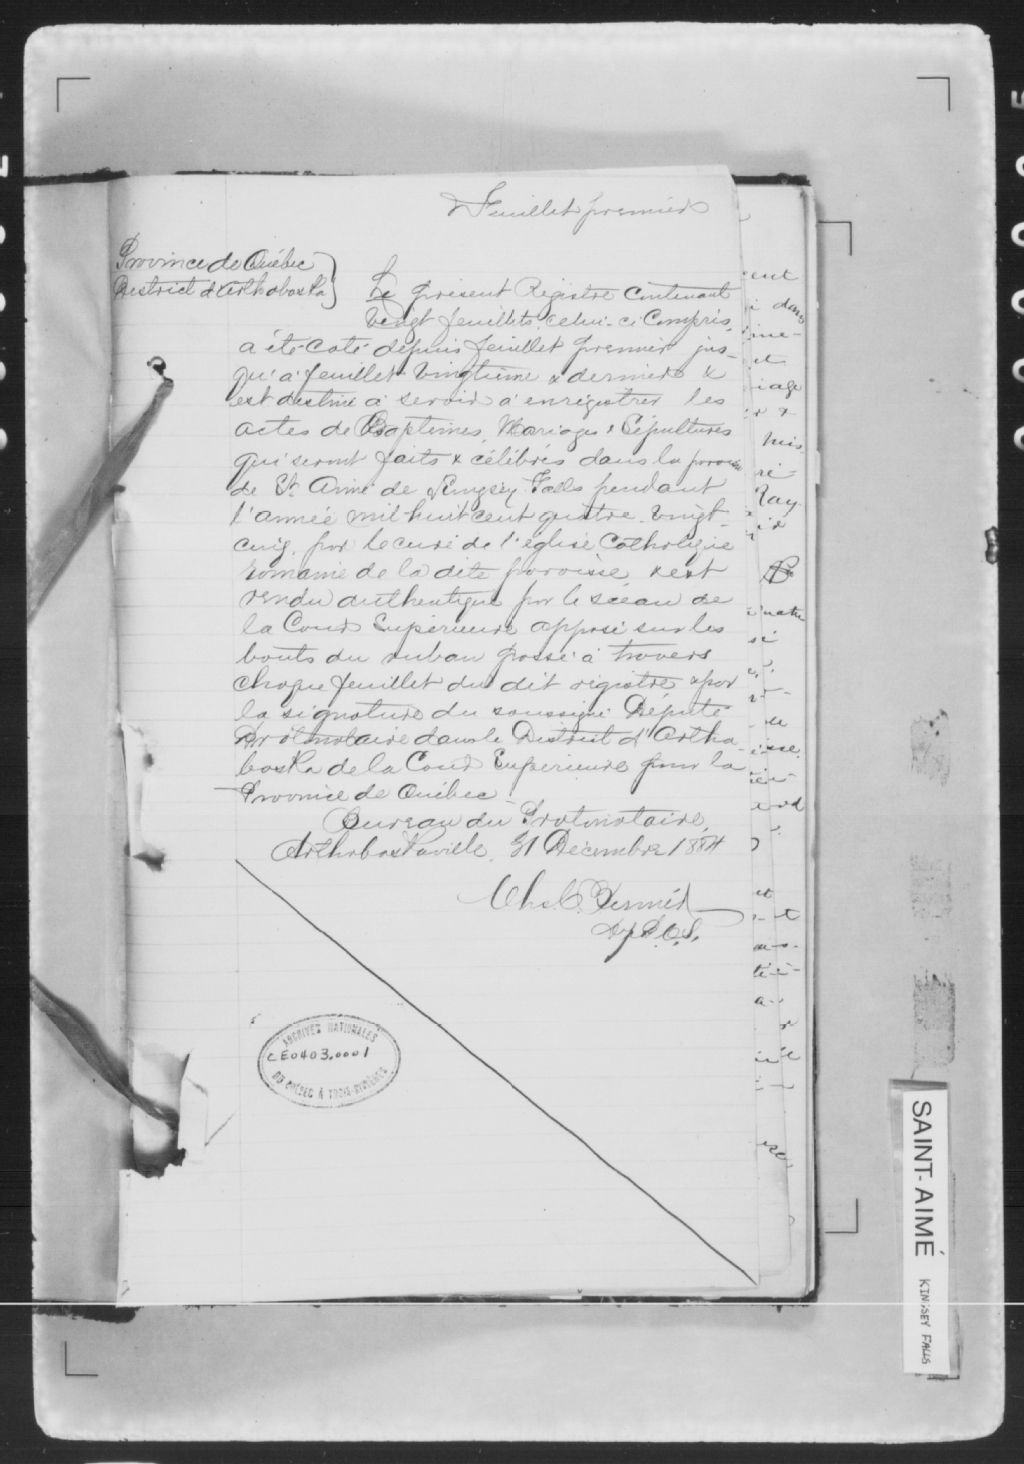 Feuillet premier
Province de Québec
District d'Arthabaska
Le présent Registre contenant
vingt feuillets, celui-ci compris,
a été coté depuis feuillet premier jus-
qu'à feuillet vingtième & dernier &
est destiné à servir à enregistrer les
actes de Baptêmes, Mariages & Sépultures
qui seront faits & célébrés dans la paroisse
de St Aimé de Kingsey Falls pendant
l'année mil huit cent quatre-vingt-
cinq, par le curé de l'église Catholique
romaine de la dite paroisse, & est
rendu authentique par le sceau de
la Cour Supérieure apposé sur les
bouts du ruban passé à travers
chaque feuillet du dit registre & par
la signature du soussigné Député
Protonotaire dans le District d'Artha-
baska de la Cour Superieure pour la
Province de Québec
Bureau du Protonotaire,
Arthabaskaville, 31 Décembre 1884
Dep P.C.S.
ARCHIVES NATIONALES
CE0403.0001
DU QUÉBEC À TROIS-RIVIÈRES
SAINT-AIMÉ
KINGSEY FALLS